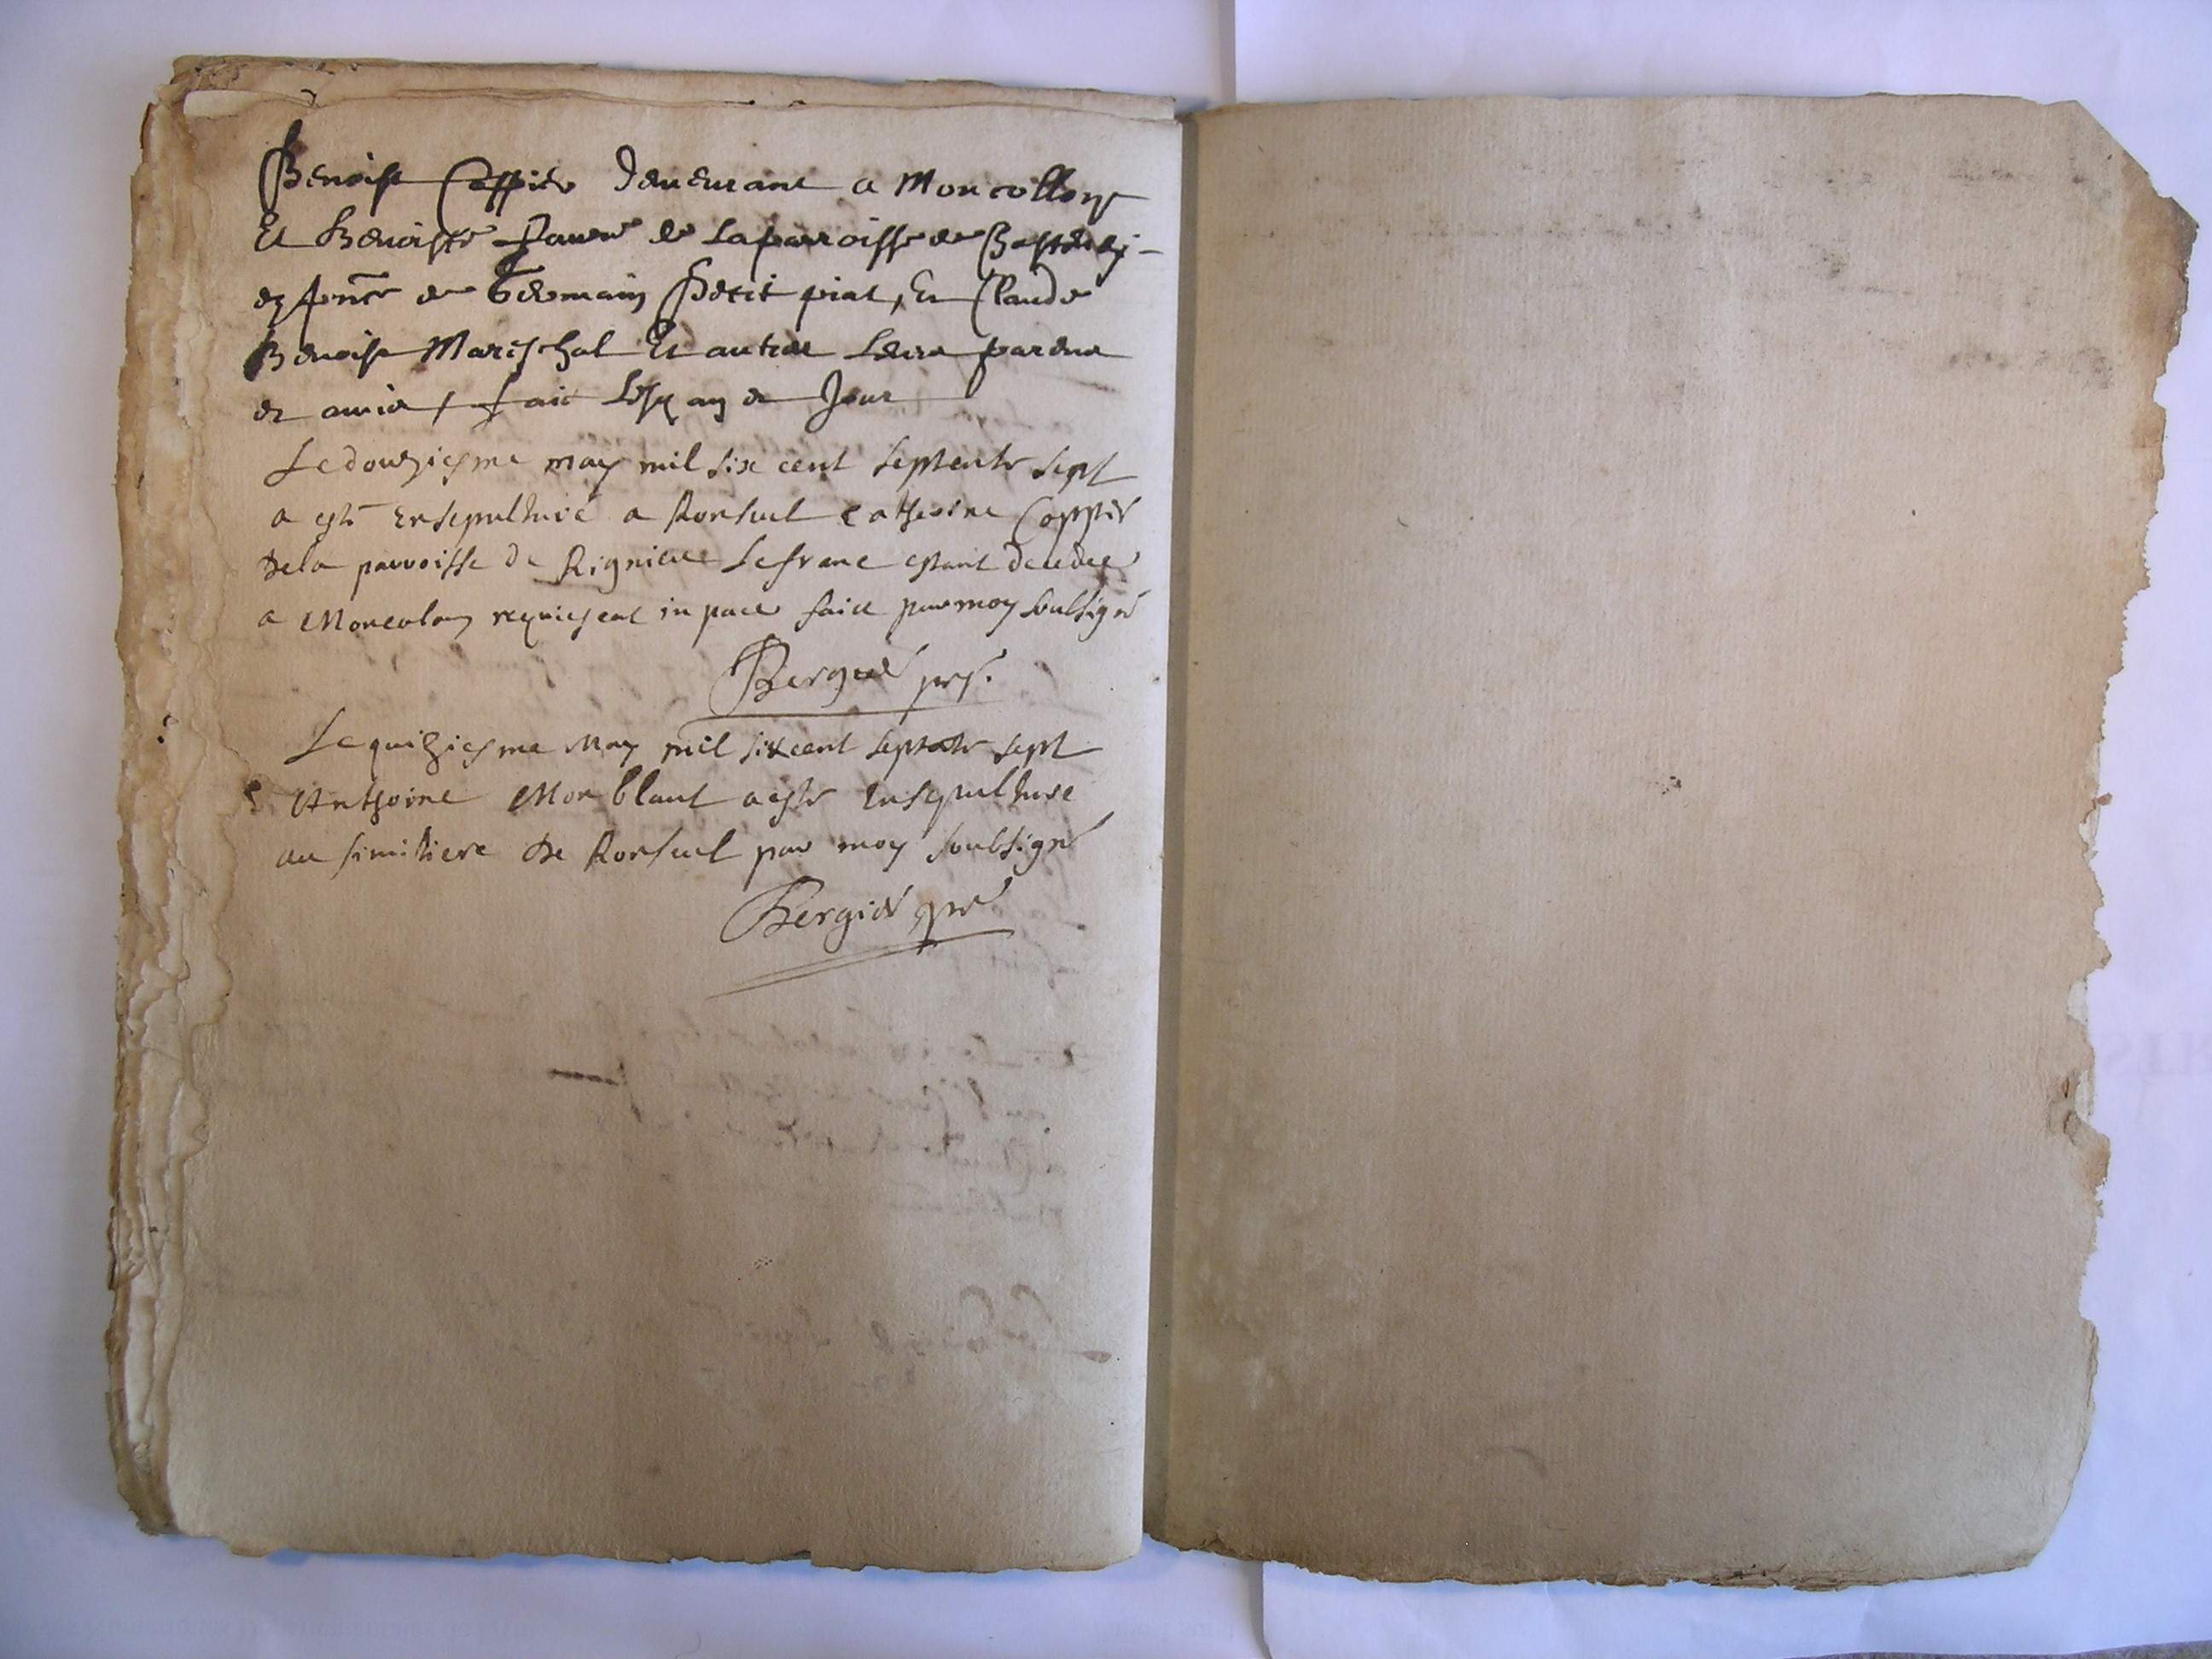 Benoist Coppier demeurant a Moncollong
Et Benoiste Favre de la parroisse de
en pnce de Germain Petit piat, Et Claude
Benoist Mareschal Et autres leurs parens
et amis, fait les an et Jour
Le douziesme may mil six cent septente sept
a este Ensepulturé a Ronsuel Catherine Coppier
de la parroisse de Rignieu le franc estant decedee
a Moncolong requiescat in pace faict par moy soubsigné
Bergier
Le quinziesme May mil six cent septente sept
Anthoine Monblant a este Ensepulture
au simitiere de Ronsuel par moy soubsigné
Bergier pre